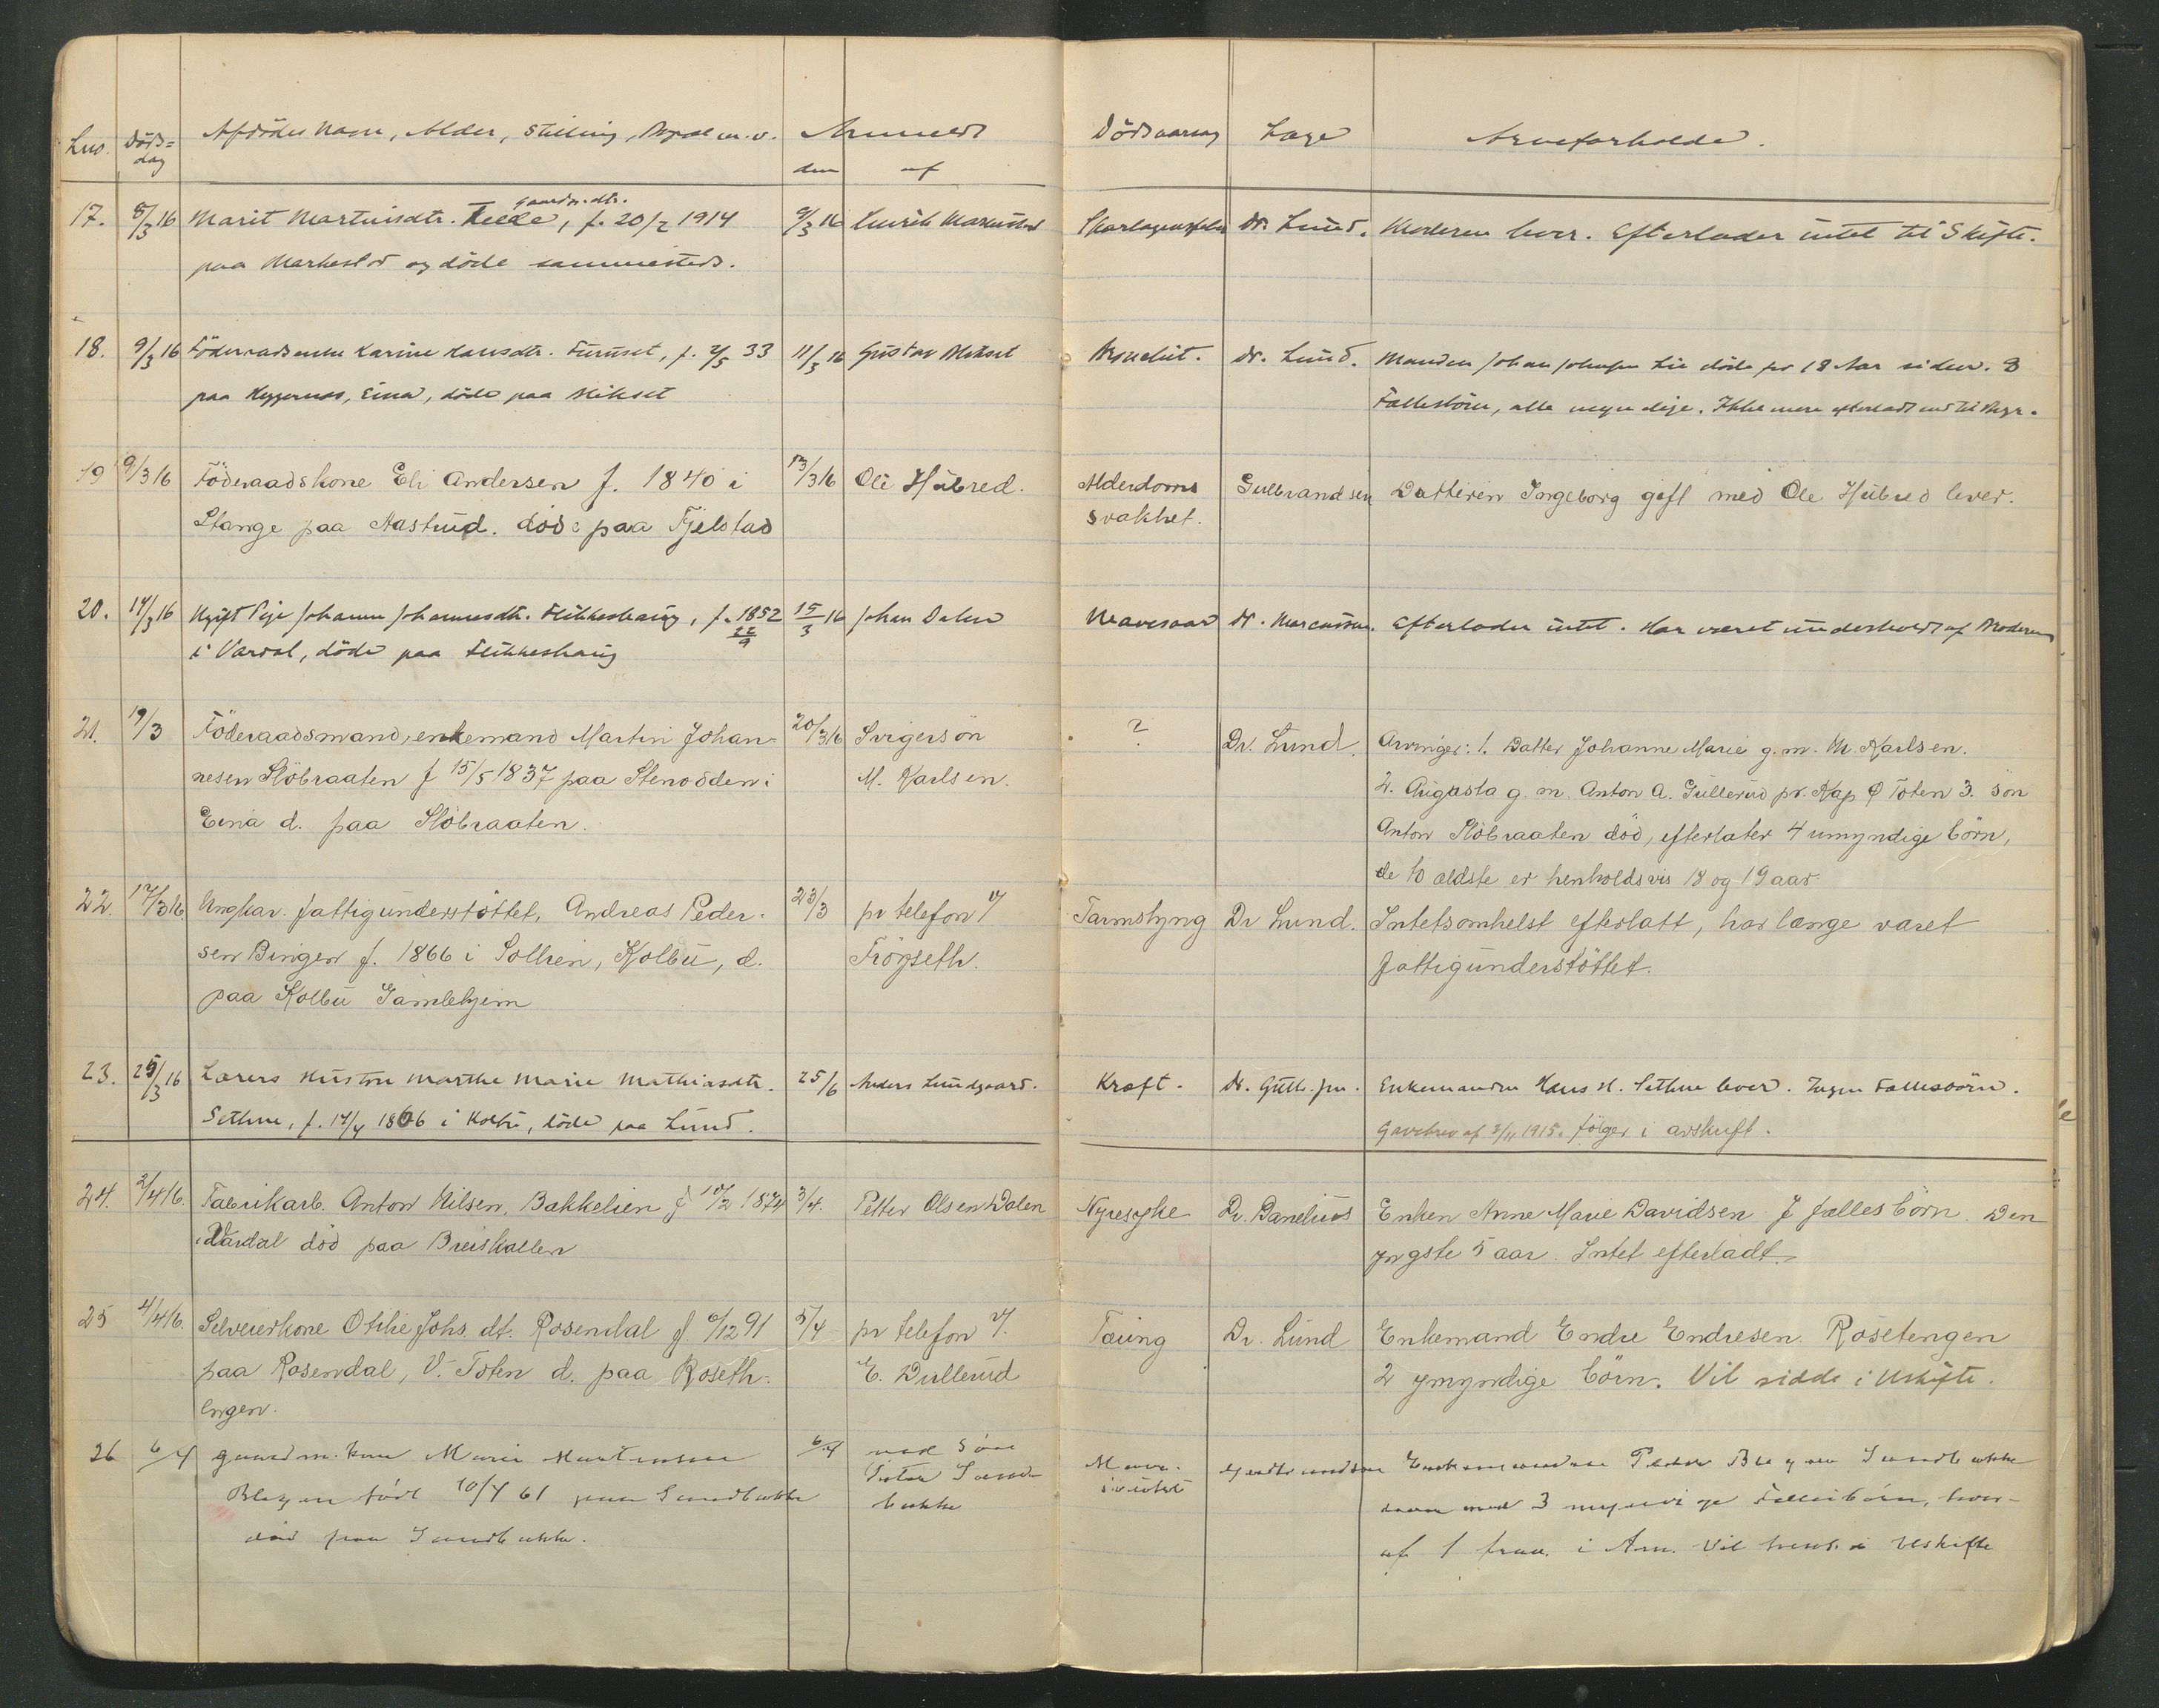 Lno. Döds= Afdödes Navn, Alder, Stilling, Bopæl m.v. Anmeldt Dödsaarsag Læge Arveforholde.
dag den af
17. 8/3 16 Marit Martinsdtr. gaardm.dtr. f. 20/2 1914 9/3 16 Skarlagensfeber Dr. Lund. Moderen lever. Efterlader intet til Skifte.
paa Markestad og döde sammesteds.
18. 9/3 16 Föderaadsenke Karine Hansdtr. Furuset, f. 2/5 33 11/3 16 Gustav Mikset Bronchit. Dr. Lund. Manden Johan Johnsen Lie döde for 18 Aar siden. 3
paa Eina, döde paa Mikset Fællesbörn, alle myndige. Ikke mere efterladt end til Begr.
19 9/3 16 Föderaadskone Eli Andersen f. 1840 i 13/3 16 Ole Hübred. Alderdoms Gulbrandsen Datteren Ingeborg gift med Ole Hübred lever.
Stange paa Aastüd. döde paa Fjelstad svakhet.
20. 14/3 16 Ugift Pige Johanne Johannesdtr. Flikkeshaug, f. 1852 15/3 16 Johan Dalen Mavesaar Dr. Marcussen. Efterlader intet. Har været underholdt af Moderen
22/9
i Vardal, döde paa Flikkeshaug
21. 19/3 Föderaadsmand, enkemand Martin Johan- 20/3 16 Svigersön ? Dr. Lund. Arvinger: 1. Datter Johanne Marie g. m. M. Karlsen.
nesen Slöbraaten f 15/5 1837 paa Stenodden i M. Karlsen. 2. Augusta g. m. Anton A. Gullerud pr. Kap Ø Toten 3. sön
Eina d. paa Slöbraaten. Anton Slöbraaten död, efterlater 4 umyndige börn,
de to ældste er henholdsvis 18 og 19 aar
22. 17/3 16 Ungkar. fattigunderstöttet, Andreas Peder- 23/3 pr telefon v/ Tarmslyng Dr Lund. Intetsomhelst efterlatt, har længe været
sen Bingen f. 1866 i Sollien, Kolbu, d. Fröyseth. fattigunderstöttet.
paa Kolbu Gamlehjem
23. 25/3 16 Lærers Hustru Marthe Marie Mathiasdtr. 25/6 Anders Lundgaard. Kræft. Dr. Gulb.sen. Enkemanden Hans H. Sethne lever. Ingen Fællesbörn.
Sethne, f. 17/4 1866 i Kolbu, döde paa Lund. Gavebrev af 3/11 1915. fölger i avskrift.
24. 2/4 16. Fabrikarb. Anton Nilsen, Bakkelien f 10/2 1874 3/4. Petter Olsen Dalen Nyresyke Dr. Danelius Enken Anne Marie Davidsen 7 fælles börn. Den
i Vardal död paa Breiskallen yngste 5 aar. Intet efterladt.
25 4/4 16. Selveierkone Othie Johs. dt. Rosendal f. 6/12 91 5/4 pr telefon v/. Tæring Dr. Lund Enkemand Endre Endresen. Rösetengen
paa Rosendal, V. Toten d. paa Röseth- E. Dullerud 2 ymyndige börn. Vil sidde i Uskifte.
engen.
26 6/4 gaardm. kone Marie Martinsen 6/4 ved Sön Enkemanden Peder Sandbakke
födt 10/4 61 paa Sandbakke Sand- med 3 myndige Fællesbörn, hvor-
död paa Sandbakke. bakke af 1 i Am. Vil i Uskifte